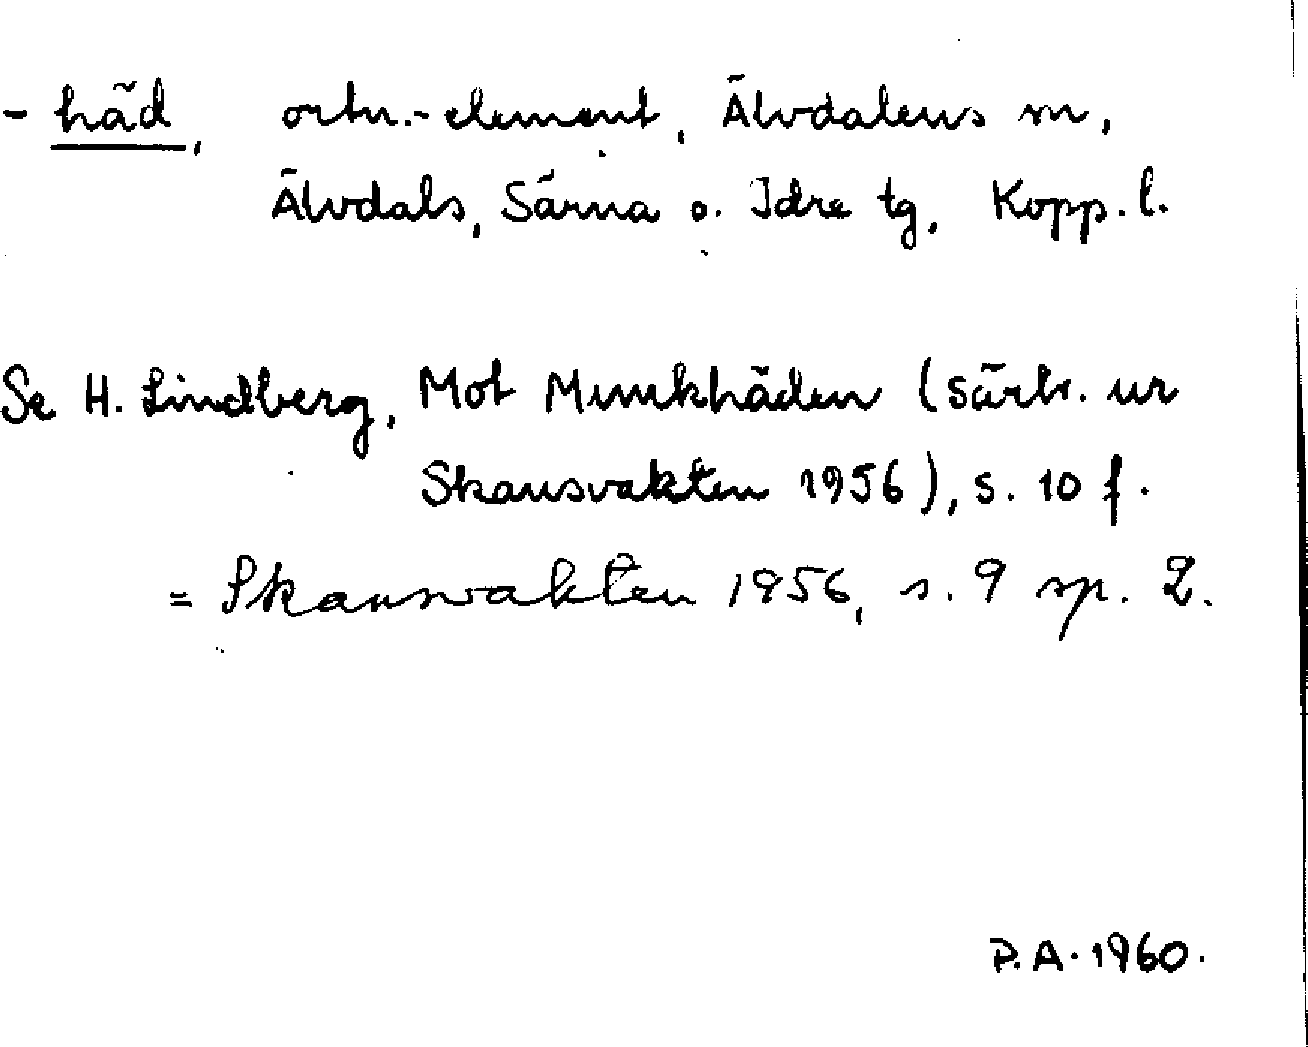 - häd, ortn.-element, Älvdalens sn,
Älvdals, Särna o. Idre tg, Kopp. l.
Se H. Lindberg, Mot Munkhäden (särtr. ur
Skansvakten 1956), s. 10 f.
= Skansvakten 1956, s. 9 sp. 2.
P.A. 1960.